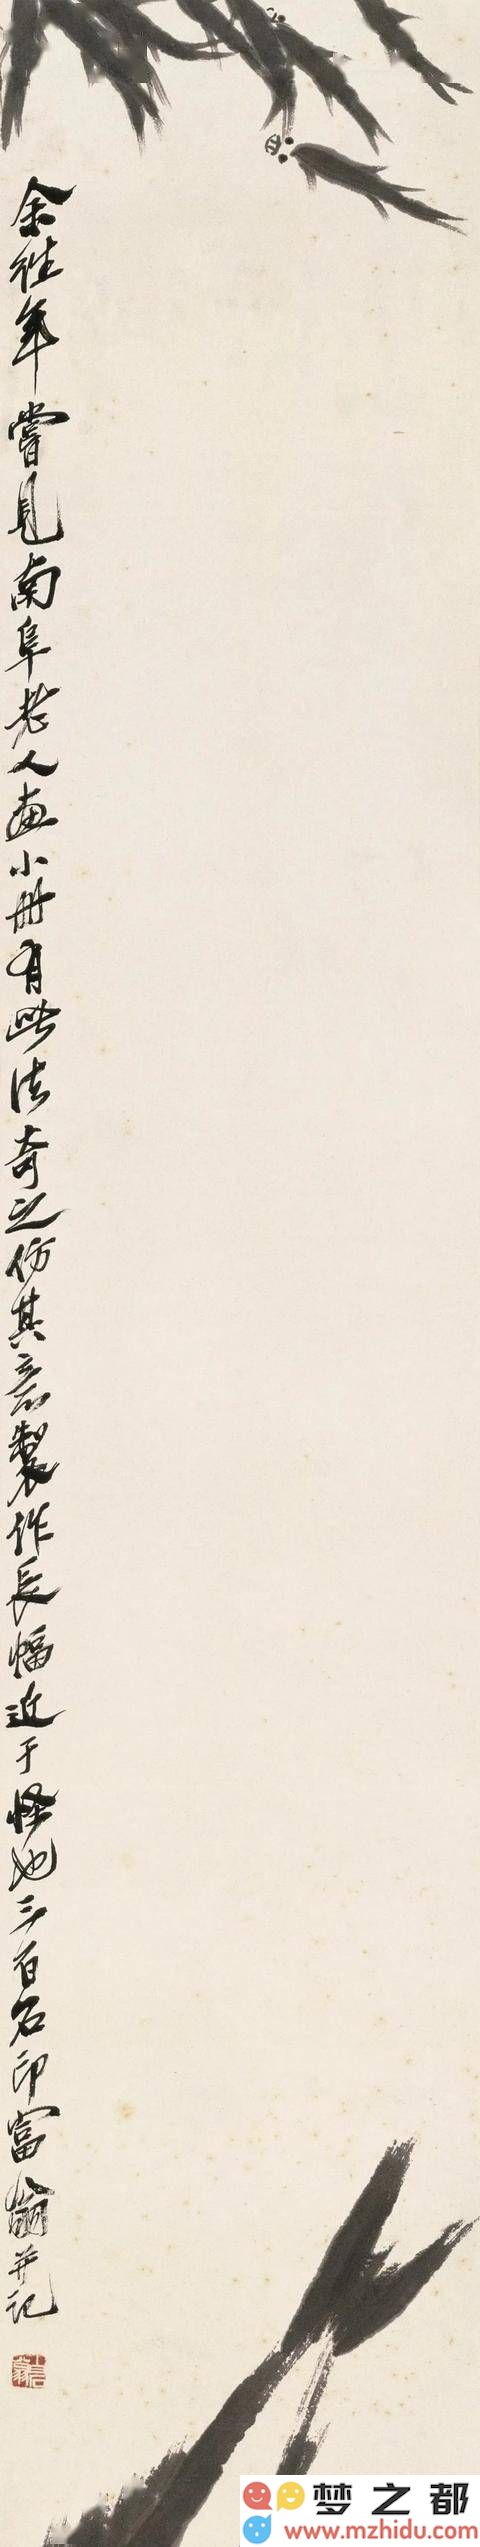 余往年嘗見南阜老人畫小冊有此法奇之仿其意製作長幅近于怪也三百石印富翁并記
梦之都
www.mzhidu.com